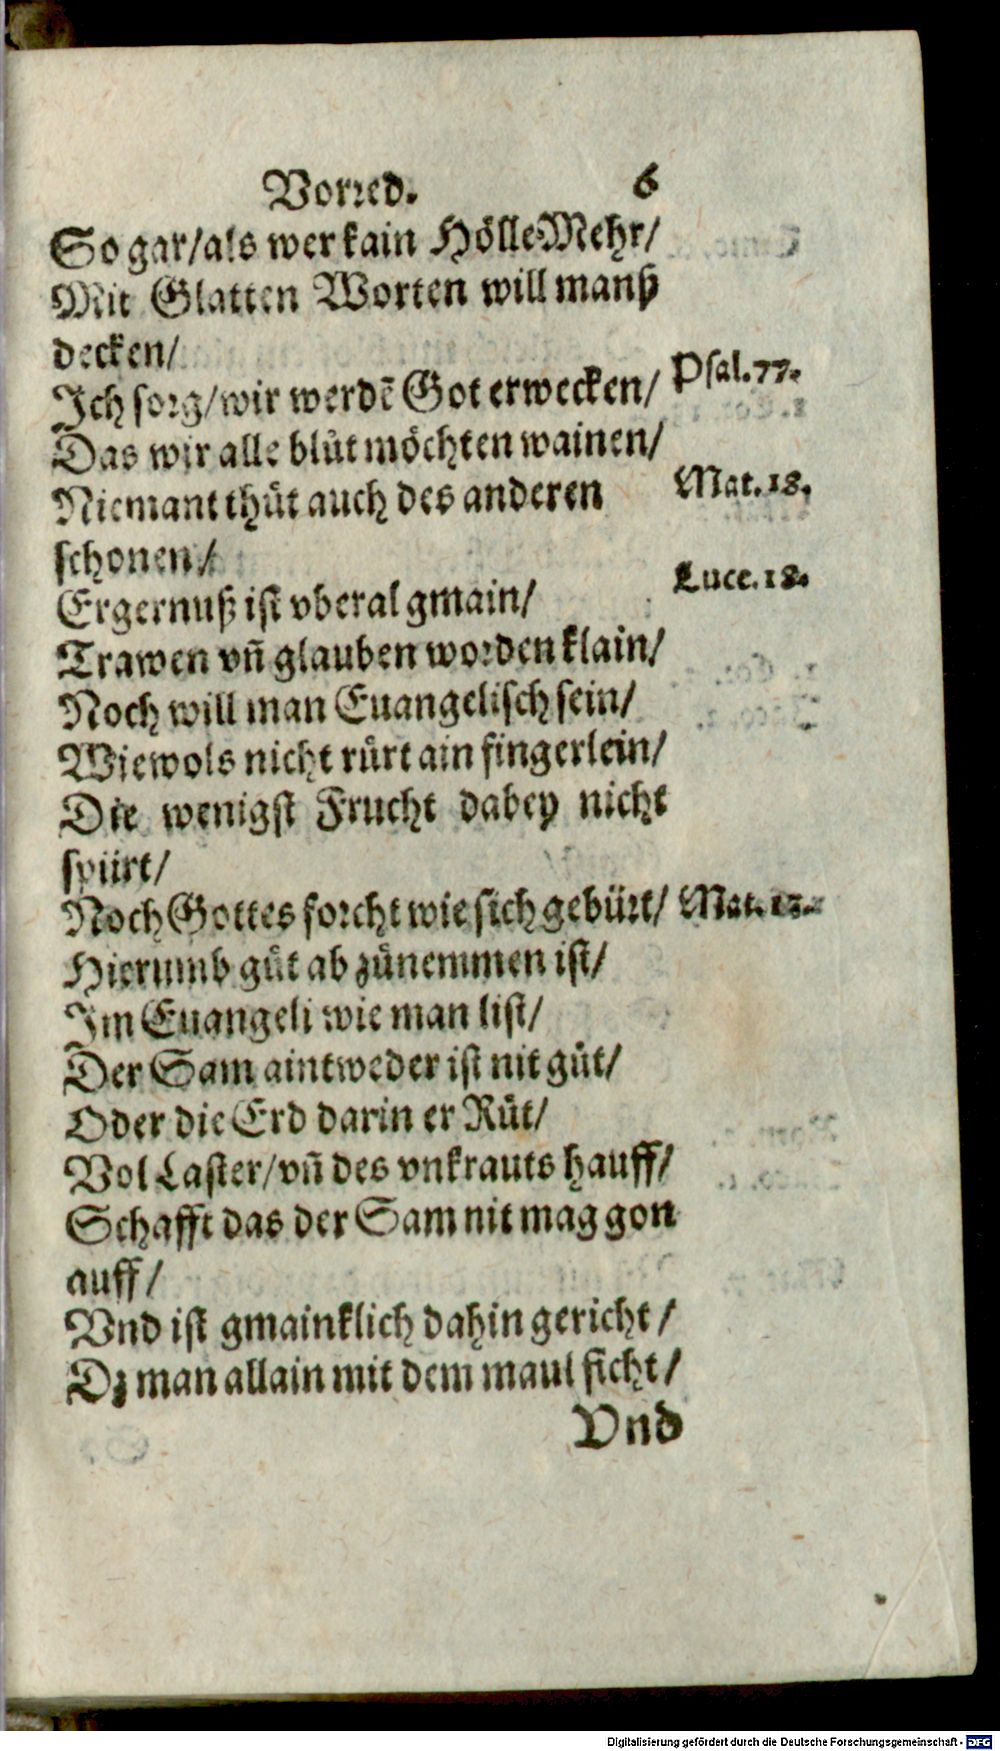 Vorred. 6
So gar/als wer kain Hölle Mehr/
Mit Glatten Worten will manß
decken/
Ich sorg/wir werdē Got erwecken/ Psal.77.
Das wir alle blůt möchten wainen/
Niemant thůt auch des anderen Mat.18.
schonen/
Ergernuß ist vberal gmain/ Luce.18.
Trawen vñ glauben worden klain/
Noch will man Euangelisch sein/
Wiewols nicht rürt ain fingerlein/
Die wenigst Frucht dabey nicht
spürt/
Noch Gottes forcht wie sich gebürt/ Mat.
Hierumb gůt ab zůnemmen ist/
Im Euangeli wie man list/
Der Sam aintweder ist nit gůt/
Oder die Erd darin er Růt/
Vol Laster/vñ des vnkrauts hauff/
Schafft das der Sam nit mag gon
auff/
Vnd ist gmainklich dahin gericht/
Dz man allain mit dem maul ficht/
Vnd
Digitalisierung gefördert durch die Deutsche Forschungsgemeinschaft - DFG